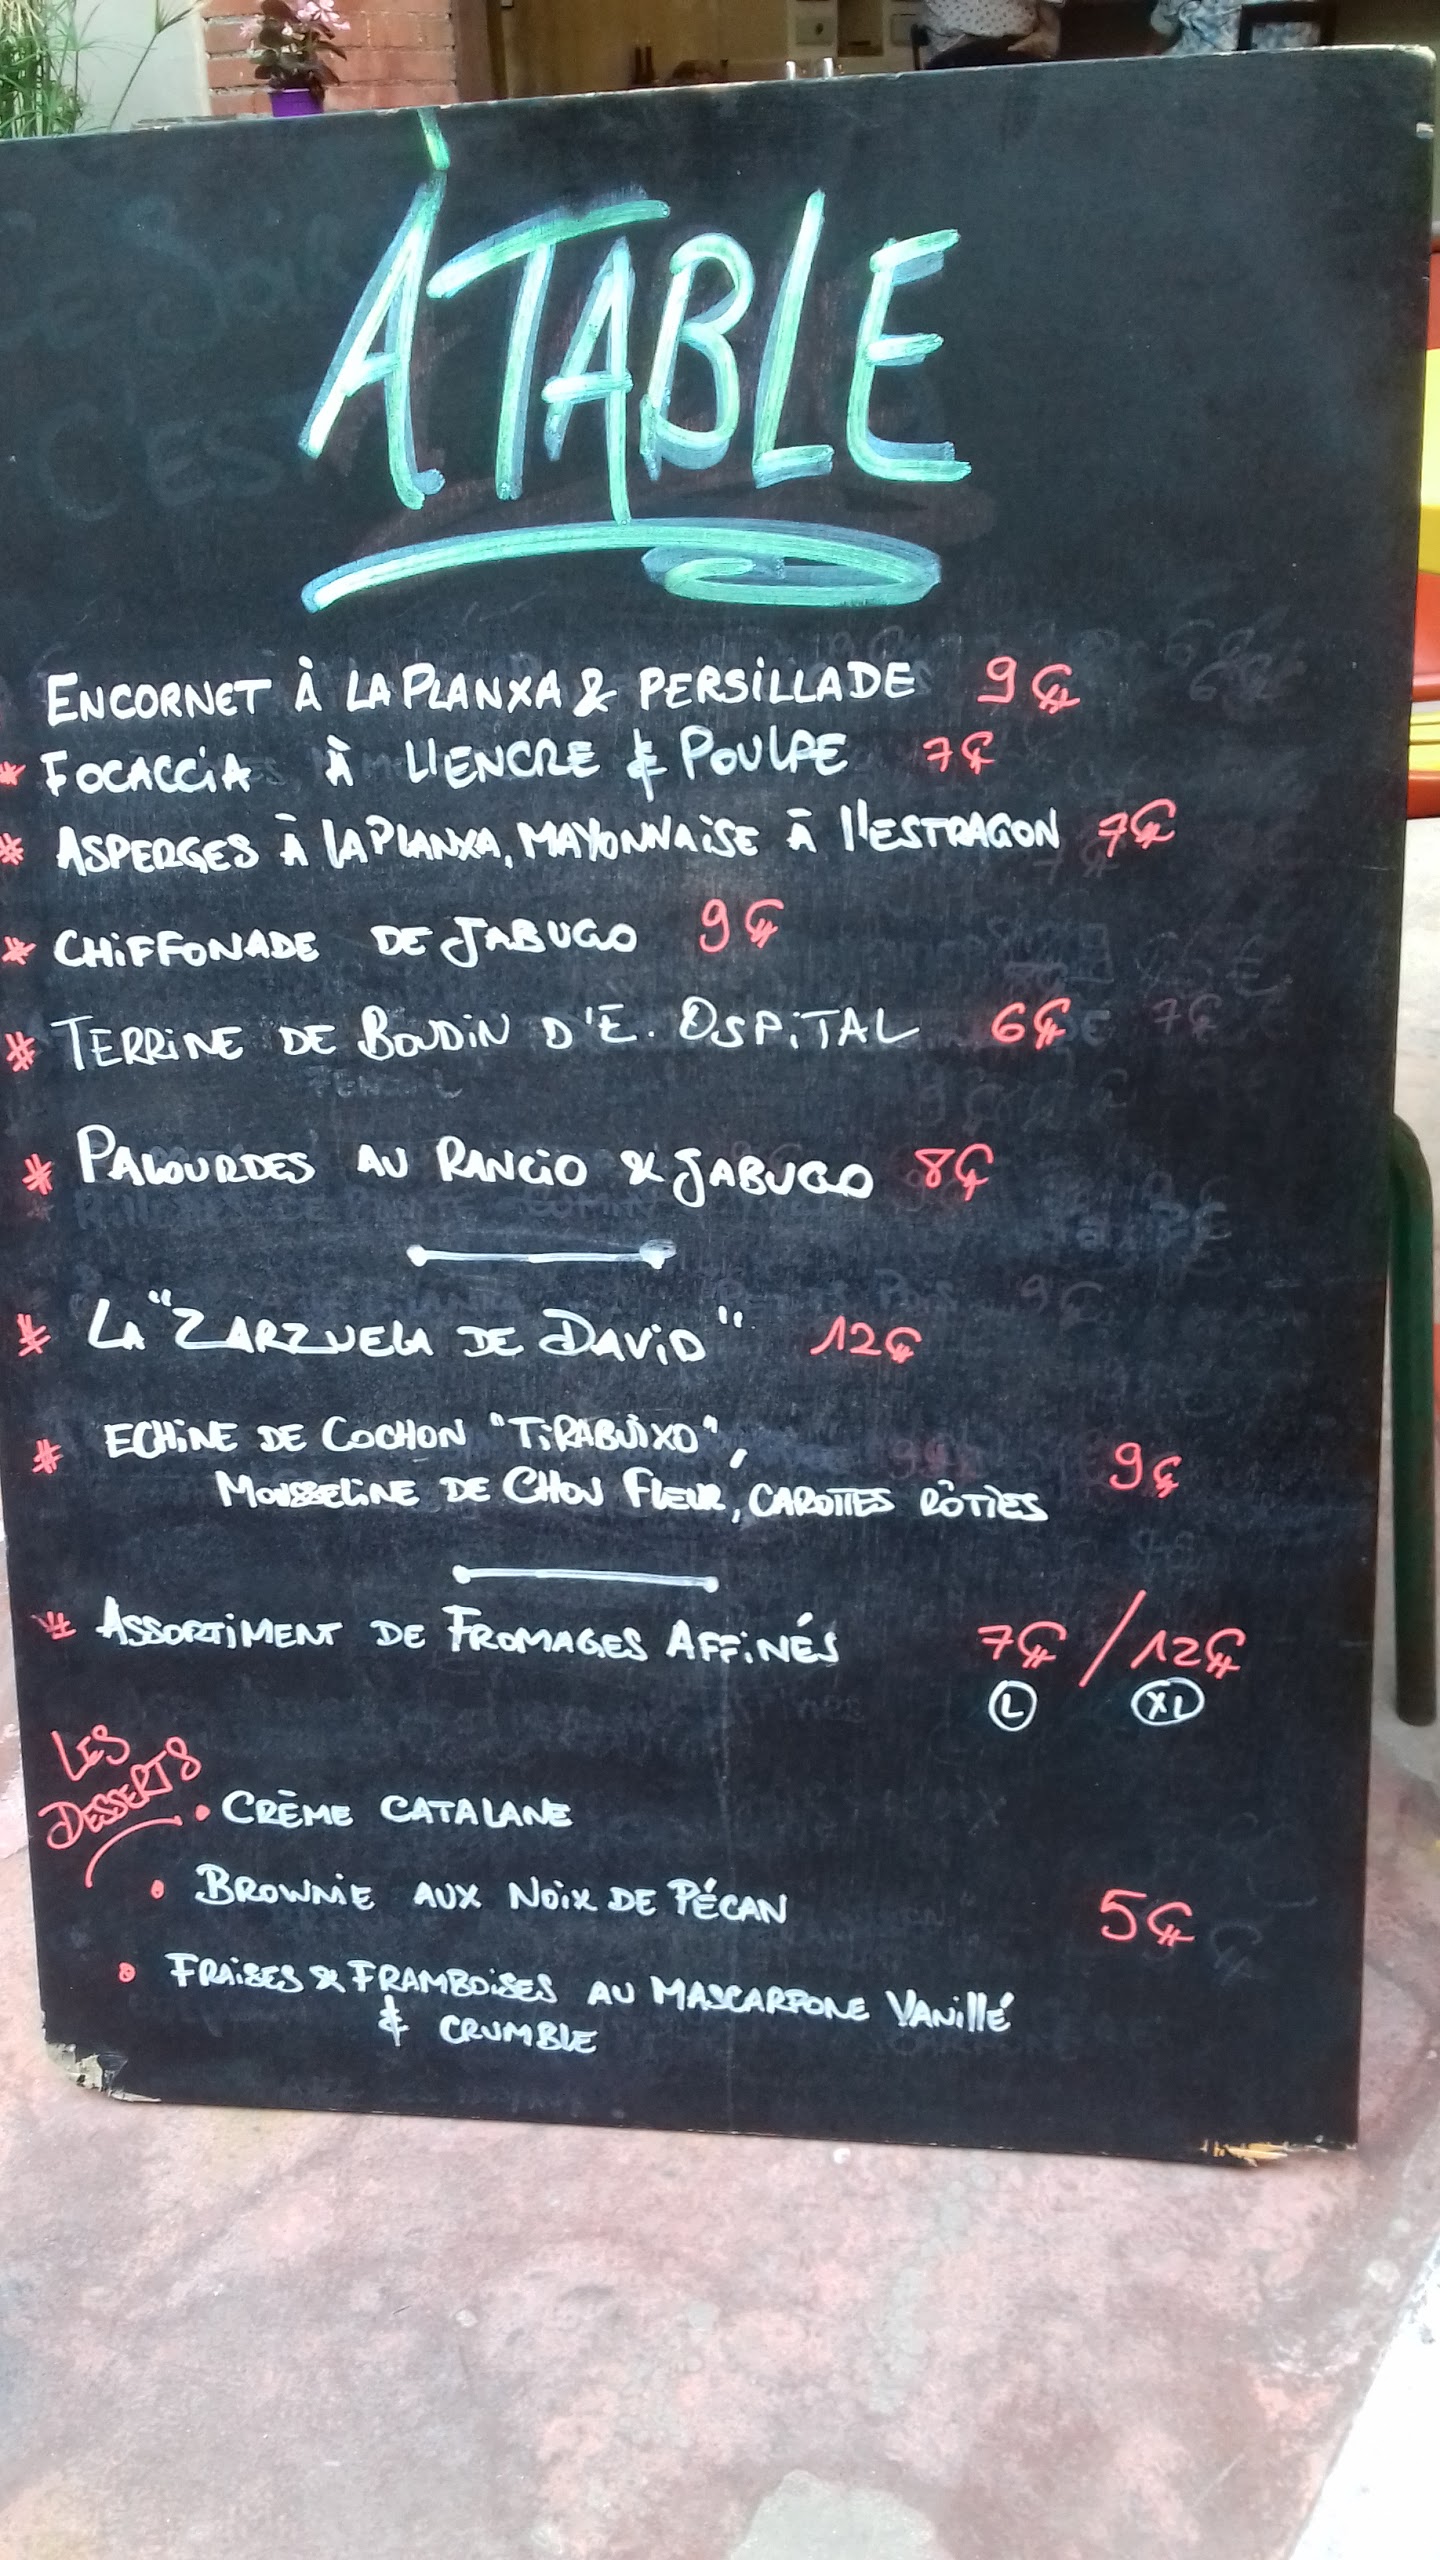 À TABLE
ENCORNET À LA PLANXA & PERSILLADE 9€
* FOCACCIA À L'ENCRE & POULPE 7€
* ASPERGES À LA PLANXA, MAYONNAISE À l'ESTRAGON 7€
* CHIFFONADE DE JABUGO 9€
* TERRINE DE BOUDIN D'E. OSPITAL 6€
* PALOURDES AU RANCIO & JABUGO 8€
* LA "ZARZUELA DE DAVID" 12€
* ECHINE DE COCHON "TIRABUIXO", 9€
MOUSSELINE DE CHOU FLEUR, CAROTTES RÔTIES
* ASSORTIMENT DE FROMAGES AFFINÉS 7€ / 12€
L XL
LES
DESSERTS
• CRÈME CATALANE
• BROWNIE AUX NOIX DE PÉCAN 5€
• FRAISES & FRAMBOISES AU MASCARPONE VANILLÉ
& CRUMBLE